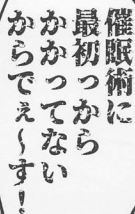 催眠術に
最初っから
かかってない
からでぇ～す!